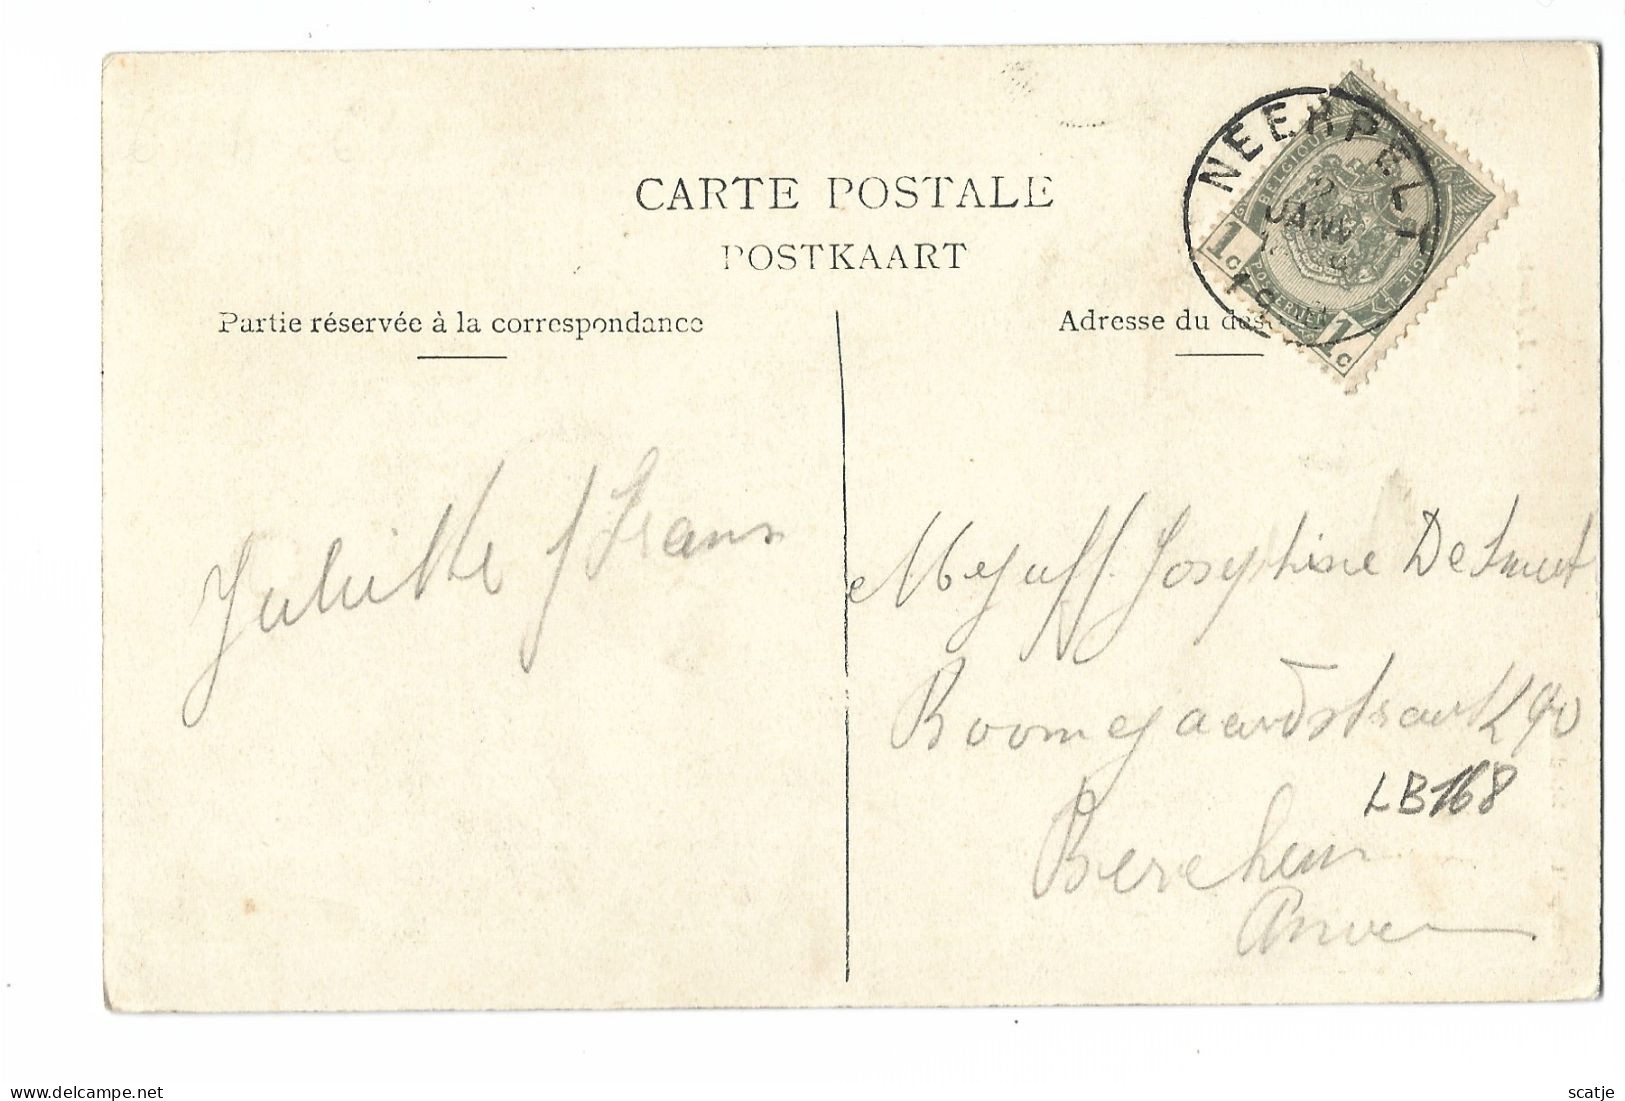 CARTE POSTALE
POSTKAART
Partie réservée à la correspondance
Adresse du des
NEERPELT
JANV
BELGIQUE
1c
1c
Juliette / Frans
Mejuff. Josephine De Smet
Boomgaardstraat 90
LB168
Berchem
Anvers
scatje